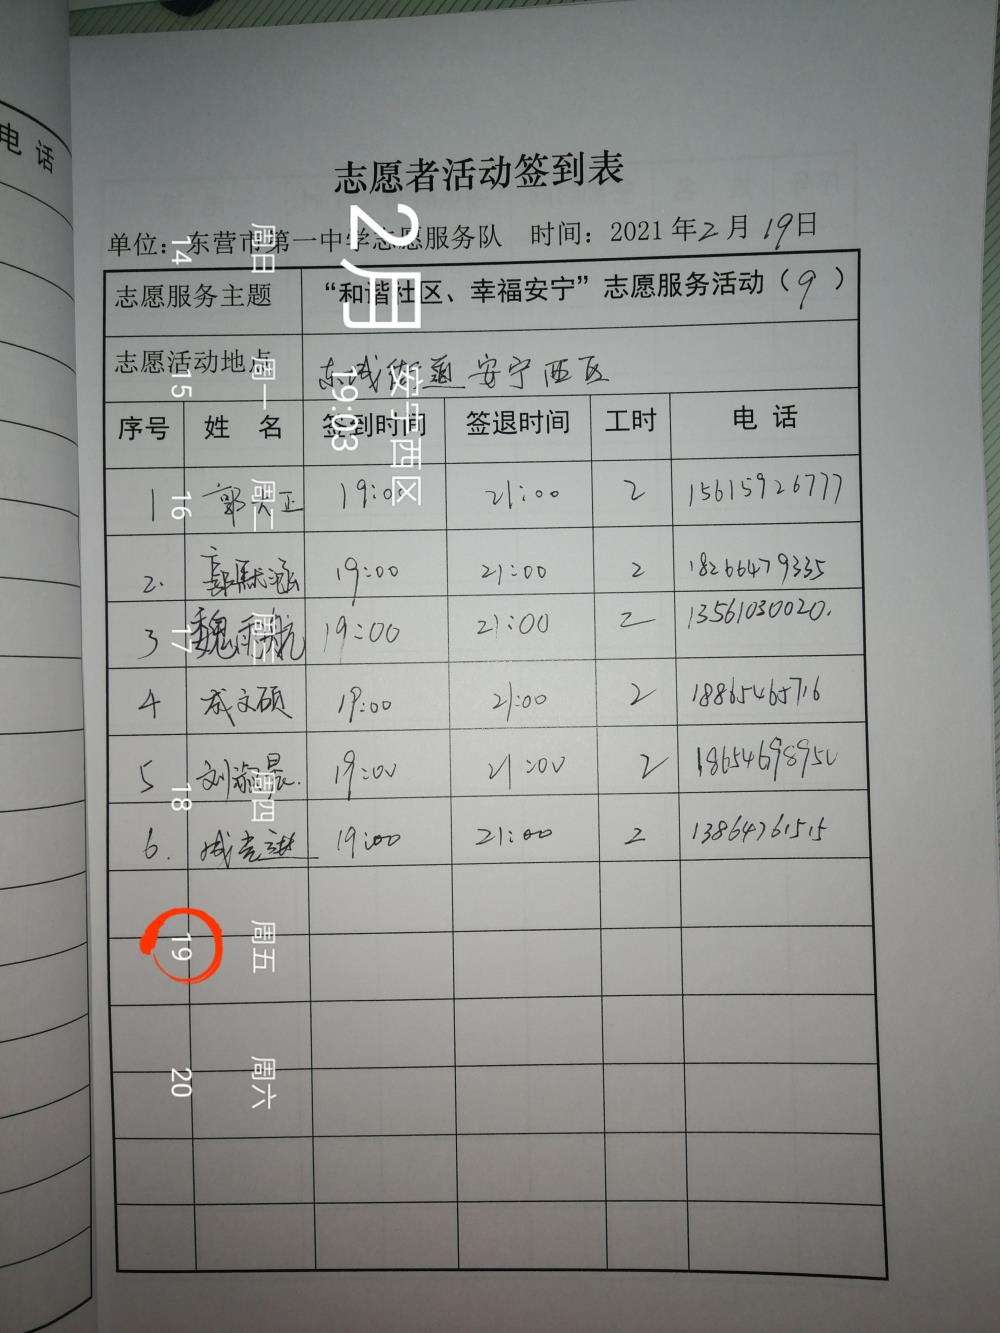 电 话
志愿者活动签到表
单位：东营市第一中学志愿服务队 时间：2021年2月19日
志愿服务主题 “和谐社区、幸福安宁”志愿服务活动（9）
志愿活动地点 东城街道安宁西区
序号 姓 名 签到时间 签退时间 工时 电 话
1 郭 正 19:00 21:00 2 15615926777
2. 郭默涵 19:00 21:00 2 18266479335
3 魏雨航 19:00 21:00 2 13561030020.
4 成文硕 19:00 21:00 2 18865465716
5 刘 晨. 19:00 21:00 2 18654698950
6. 成 进 19:00 21:00 2 13864761515
2月
19:03
安宁西区
周日 周一 周二 周三 周四 周五 周六
14 15 16 17 18 19 20